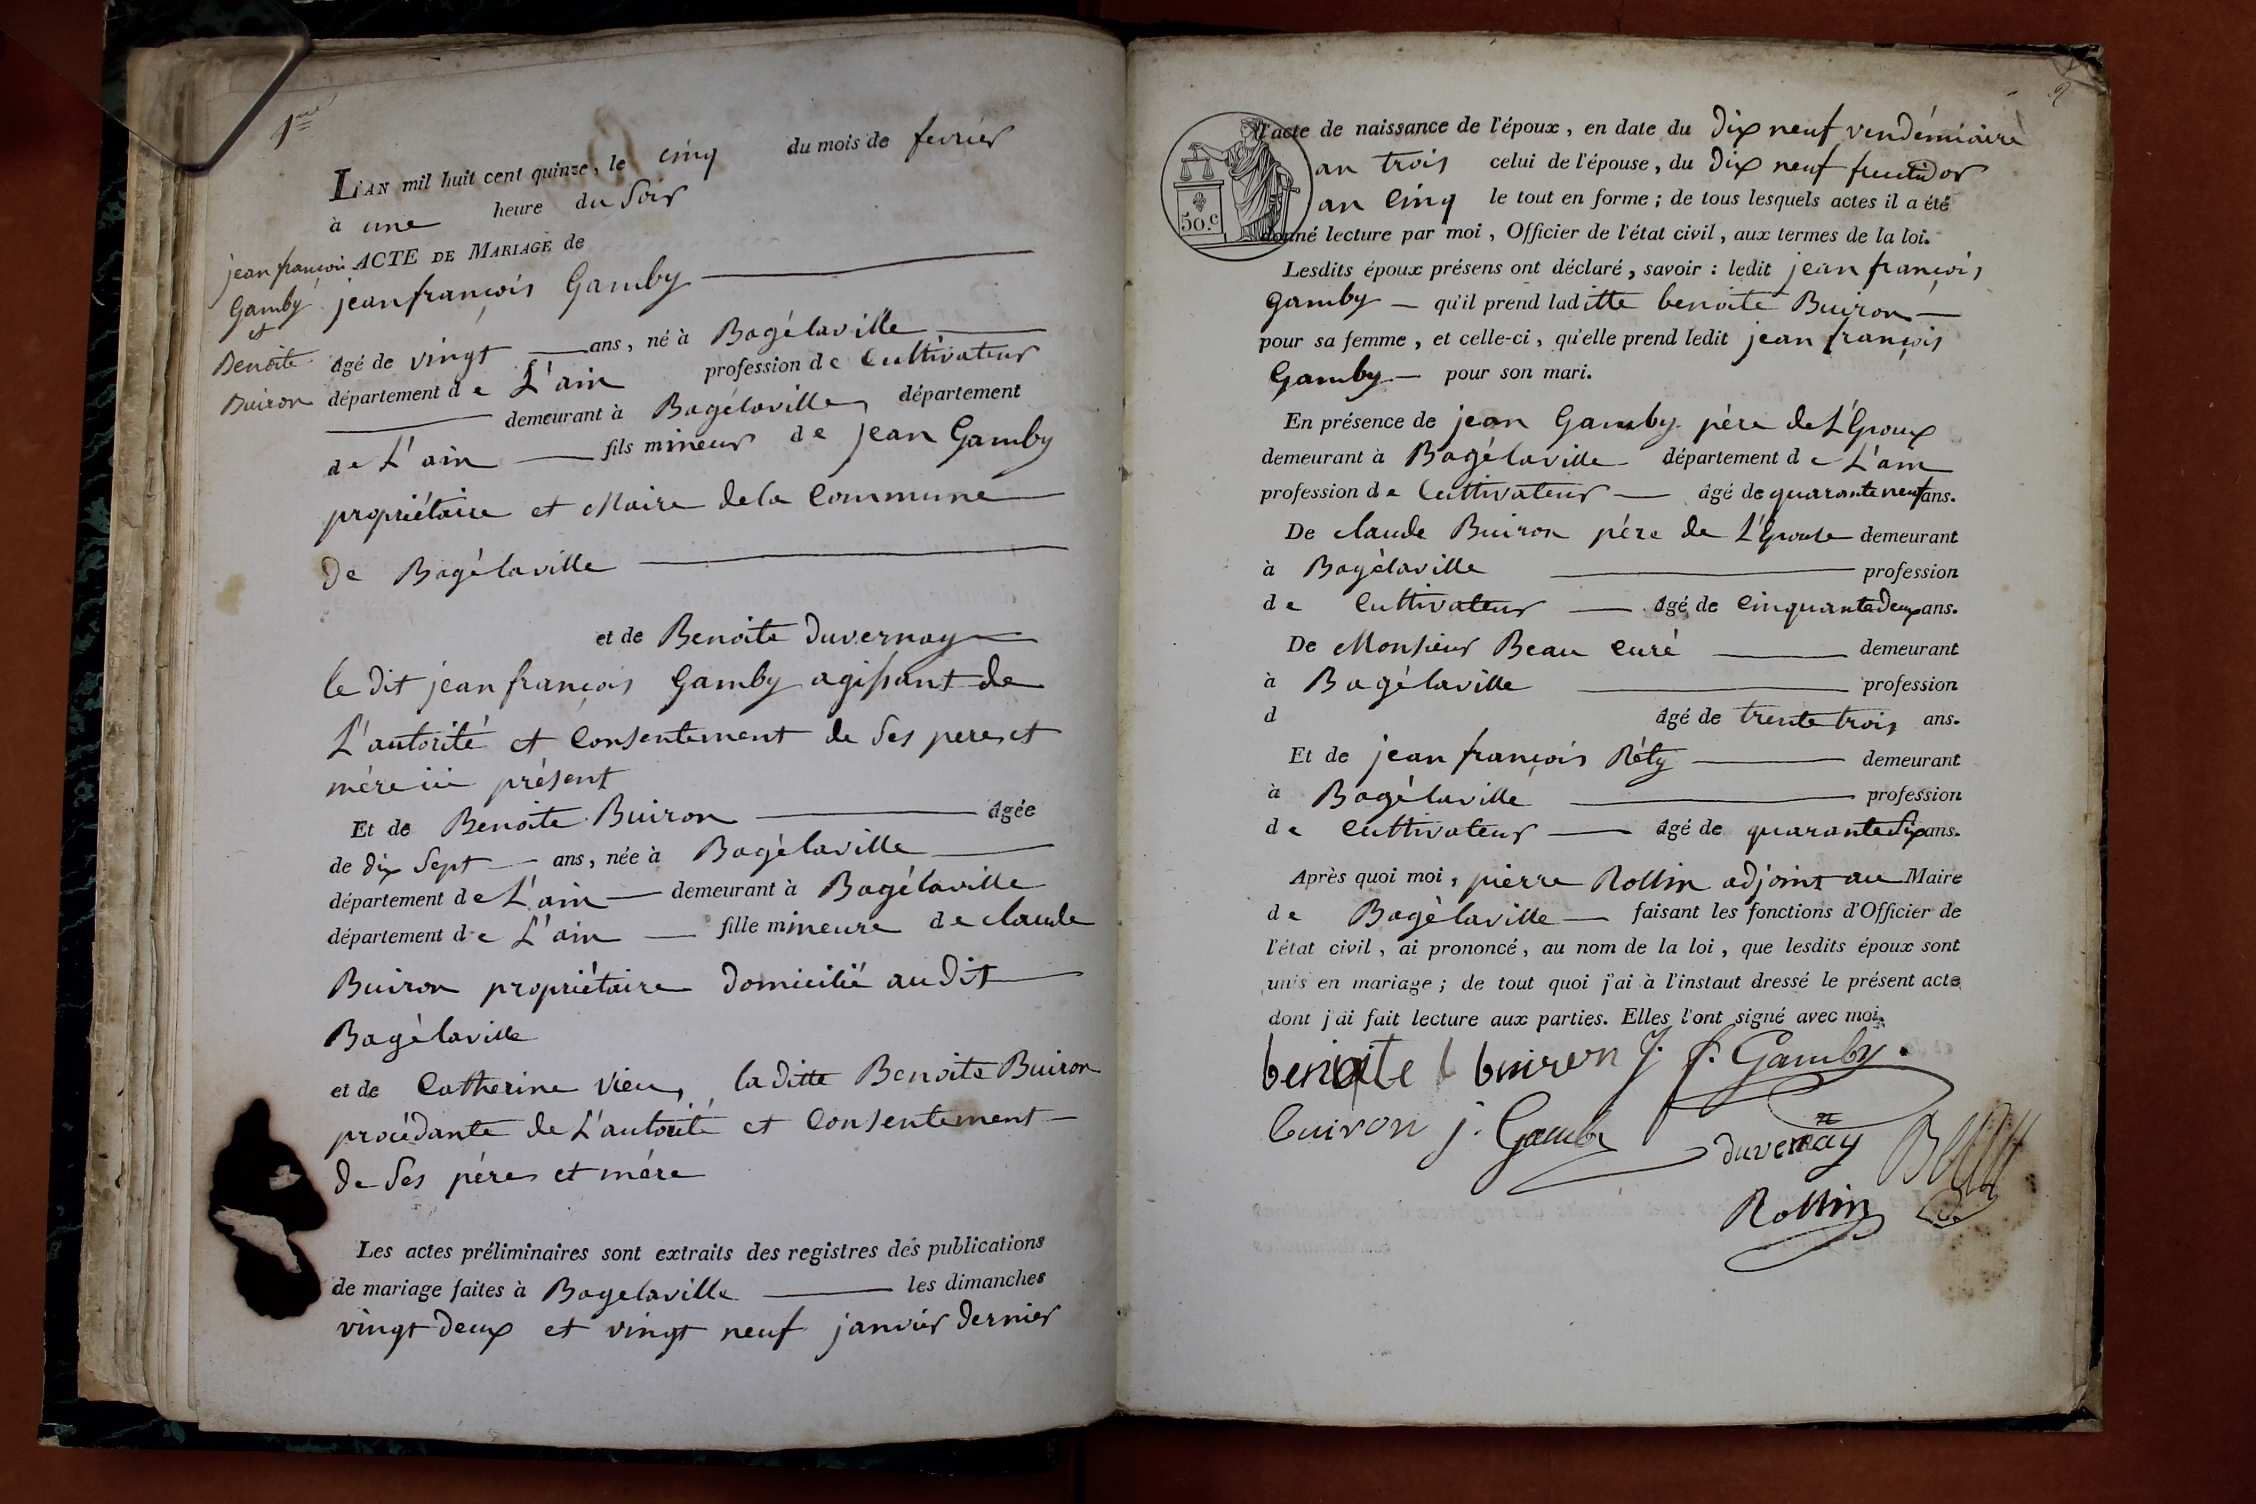 1er
L'AN mil huit cent quinze, le cinq du mois de fevrier
à une heure du Soir
ACTE DE MARIAGE de
jean françois
Gamby
et
Benoite
Buiron
jean françois Gamby
âgé de vingt ans, né à Bagélaville
département de L'ain profession de Cultivateur
demeurant à Bagélaville, département
de L'ain fils mineur de jean Gamby
propriétaire et Maire de la Commune
de Bagélaville
et de Benoite Duvernay
le dit jean françois Gamby agissant de
L'autorité et Consentement de Ses pere et
mére ici présent
Et de Benoite Buiron âgée
de dix Sept ans, née à Bagélaville
département de L'ain demeurant à Bagélaville
département de L'ain fille mineure de claude
Buiron propriétaire domicilié audit
Bagélaville
et de Catherine vieu, la ditte Benoite Buiron
procédante de L'autorité et Consentement
de Ses pére et mére
Les actes préliminaires sont extraits des registres des publications
de mariage faites à Bagelaville les dimanches
vingt deux et vingt neuf janvier dernier
2
50.c
l'acte de naissance de l'époux, en date du dix neuf vendémiaire
an trois celui de l'épouse, du dix neuf fructidor
an Cinq le tout en forme; de tous lesquels actes il a été
donné lecture par moi, Officier de l'état civil, aux termes de la loi.
Lesdits époux présens ont déclaré, savoir : ledit jean françois
Gamby qu'il prend laditte benoite Buiron
pour sa femme, et celle-ci, qu'elle prend ledit jean françois
Gamby pour son mari.
En présence de jean Gamby père de L'Epoux
demeurant à Bagélaville département de L'ain
profession de Cultivateur âgé de quarante neuf ans.
De claude Buiron pére de L'Epouse demeurant
à Bagélaville profession
de Cultivateur âgé de Cinquante deux ans.
De Monsieur Beau Curé demeurant
à Bagélaville profession
d âgé de trente trois ans.
Et de jean françois Réty demeurant
à Bagélaville profession
de Cultivateur âgé de quarante Six ans.
Après quoi moi, pierre Rollin adjoint au Maire
de Bagélaville faisant les fonctions d'Officier de
l'état civil, ai prononcé, au nom de la loi, que lesdits époux sont
unis en mariage; de tout quoi j'ai à l'instaut dressé le présent acte
dont j'ai fait lecture aux parties. Elles l'ont signé avec moi.
benoite buiron J. f. Gamby.
buiron j. Gamby duvernay
Rollin